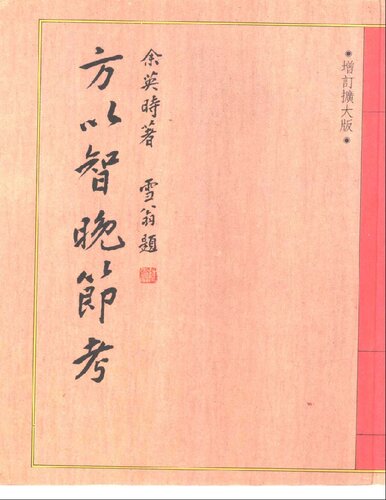 •增訂擴大版•
余英時著 雪翁題
方以智晚節考